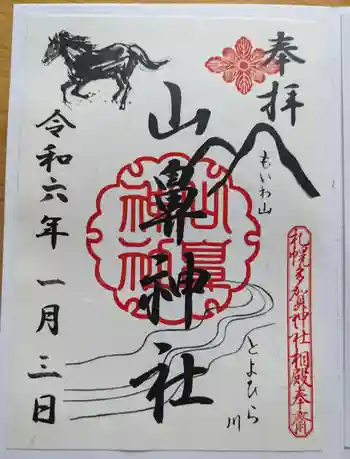 奉拝
もいわ山
札幌多賀神社相殿奉斎
山鼻神社
山鼻神社
とよひら川
令和六年一月三日